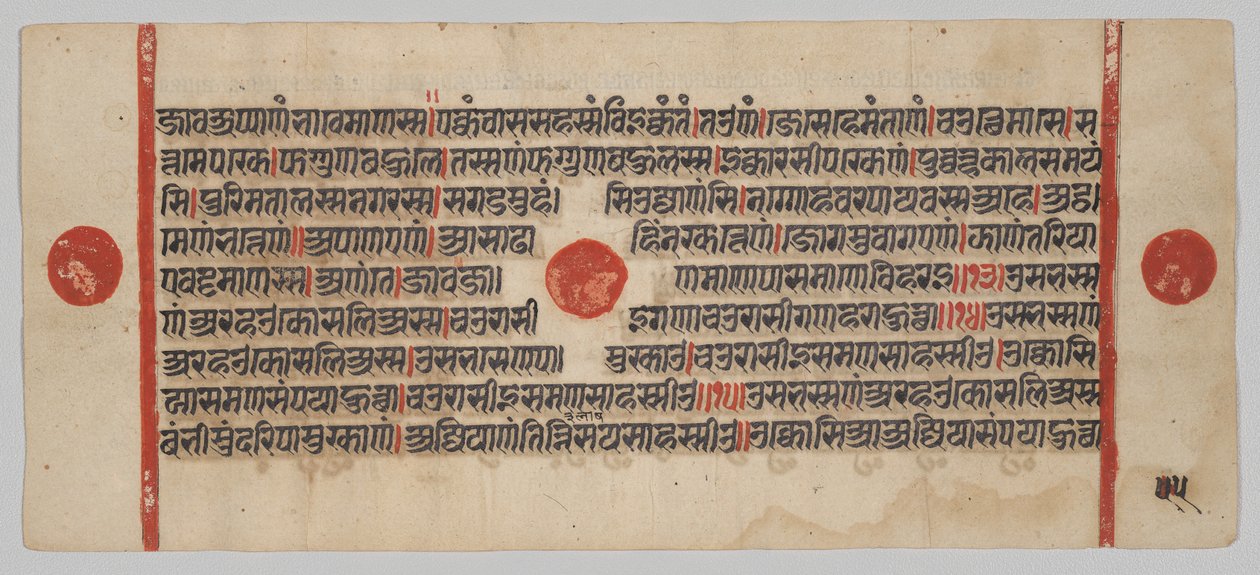 जावअप्पाणंभावेमाणस्स।एक्कंवाससहस्संविइक्कंतं।तउणं।जेसेहेमंताणं।चउत्थेमासे।स
त्तमेपक्खे।फग्गुणबहुले।तस्सणंफग्गुणबहुलस्स।इक्कारसीपक्खेणं।पुव्वण्हकालसमयं
सि।पुरिमतालस्सनगरस्स।सगडमुहं। सिउज्जाणंसि।नग्गोहवरपायवस्सअहे।अट्ठ
मेणंभत्तेणं॥अपाणएणं।आसाढा हिंनक्खत्तेणं।जोगमुवागएणं।झाणंतरिया
एवट्टमाणस्स।अणंते।जावजा। णमाणेपासमाणेविहरइ॥१३।उसभस्स
णंअरहउकोसलिअस्स।चउरासी इगणाचउरासीगणहराहुत्था॥१४।उसभस्सणं
अरहउकोसलिअस्स।उसभसेणपा। मुक्खाउ।चउरासीइसमणसाहस्सीउ।उक्कोसि
यासमणसंपयाहुत्था।चउरासीइसमणसाहस्सीउ॥१५।उसभस्सणंअरहउकोसलिअस्स
३लाष
बंभीसुंदरिपामुक्खाणं।अज्जियाणंतिन्निसयसाहस्सीउ॥उक्कोसिआअज्जियासंपयाहुत्था